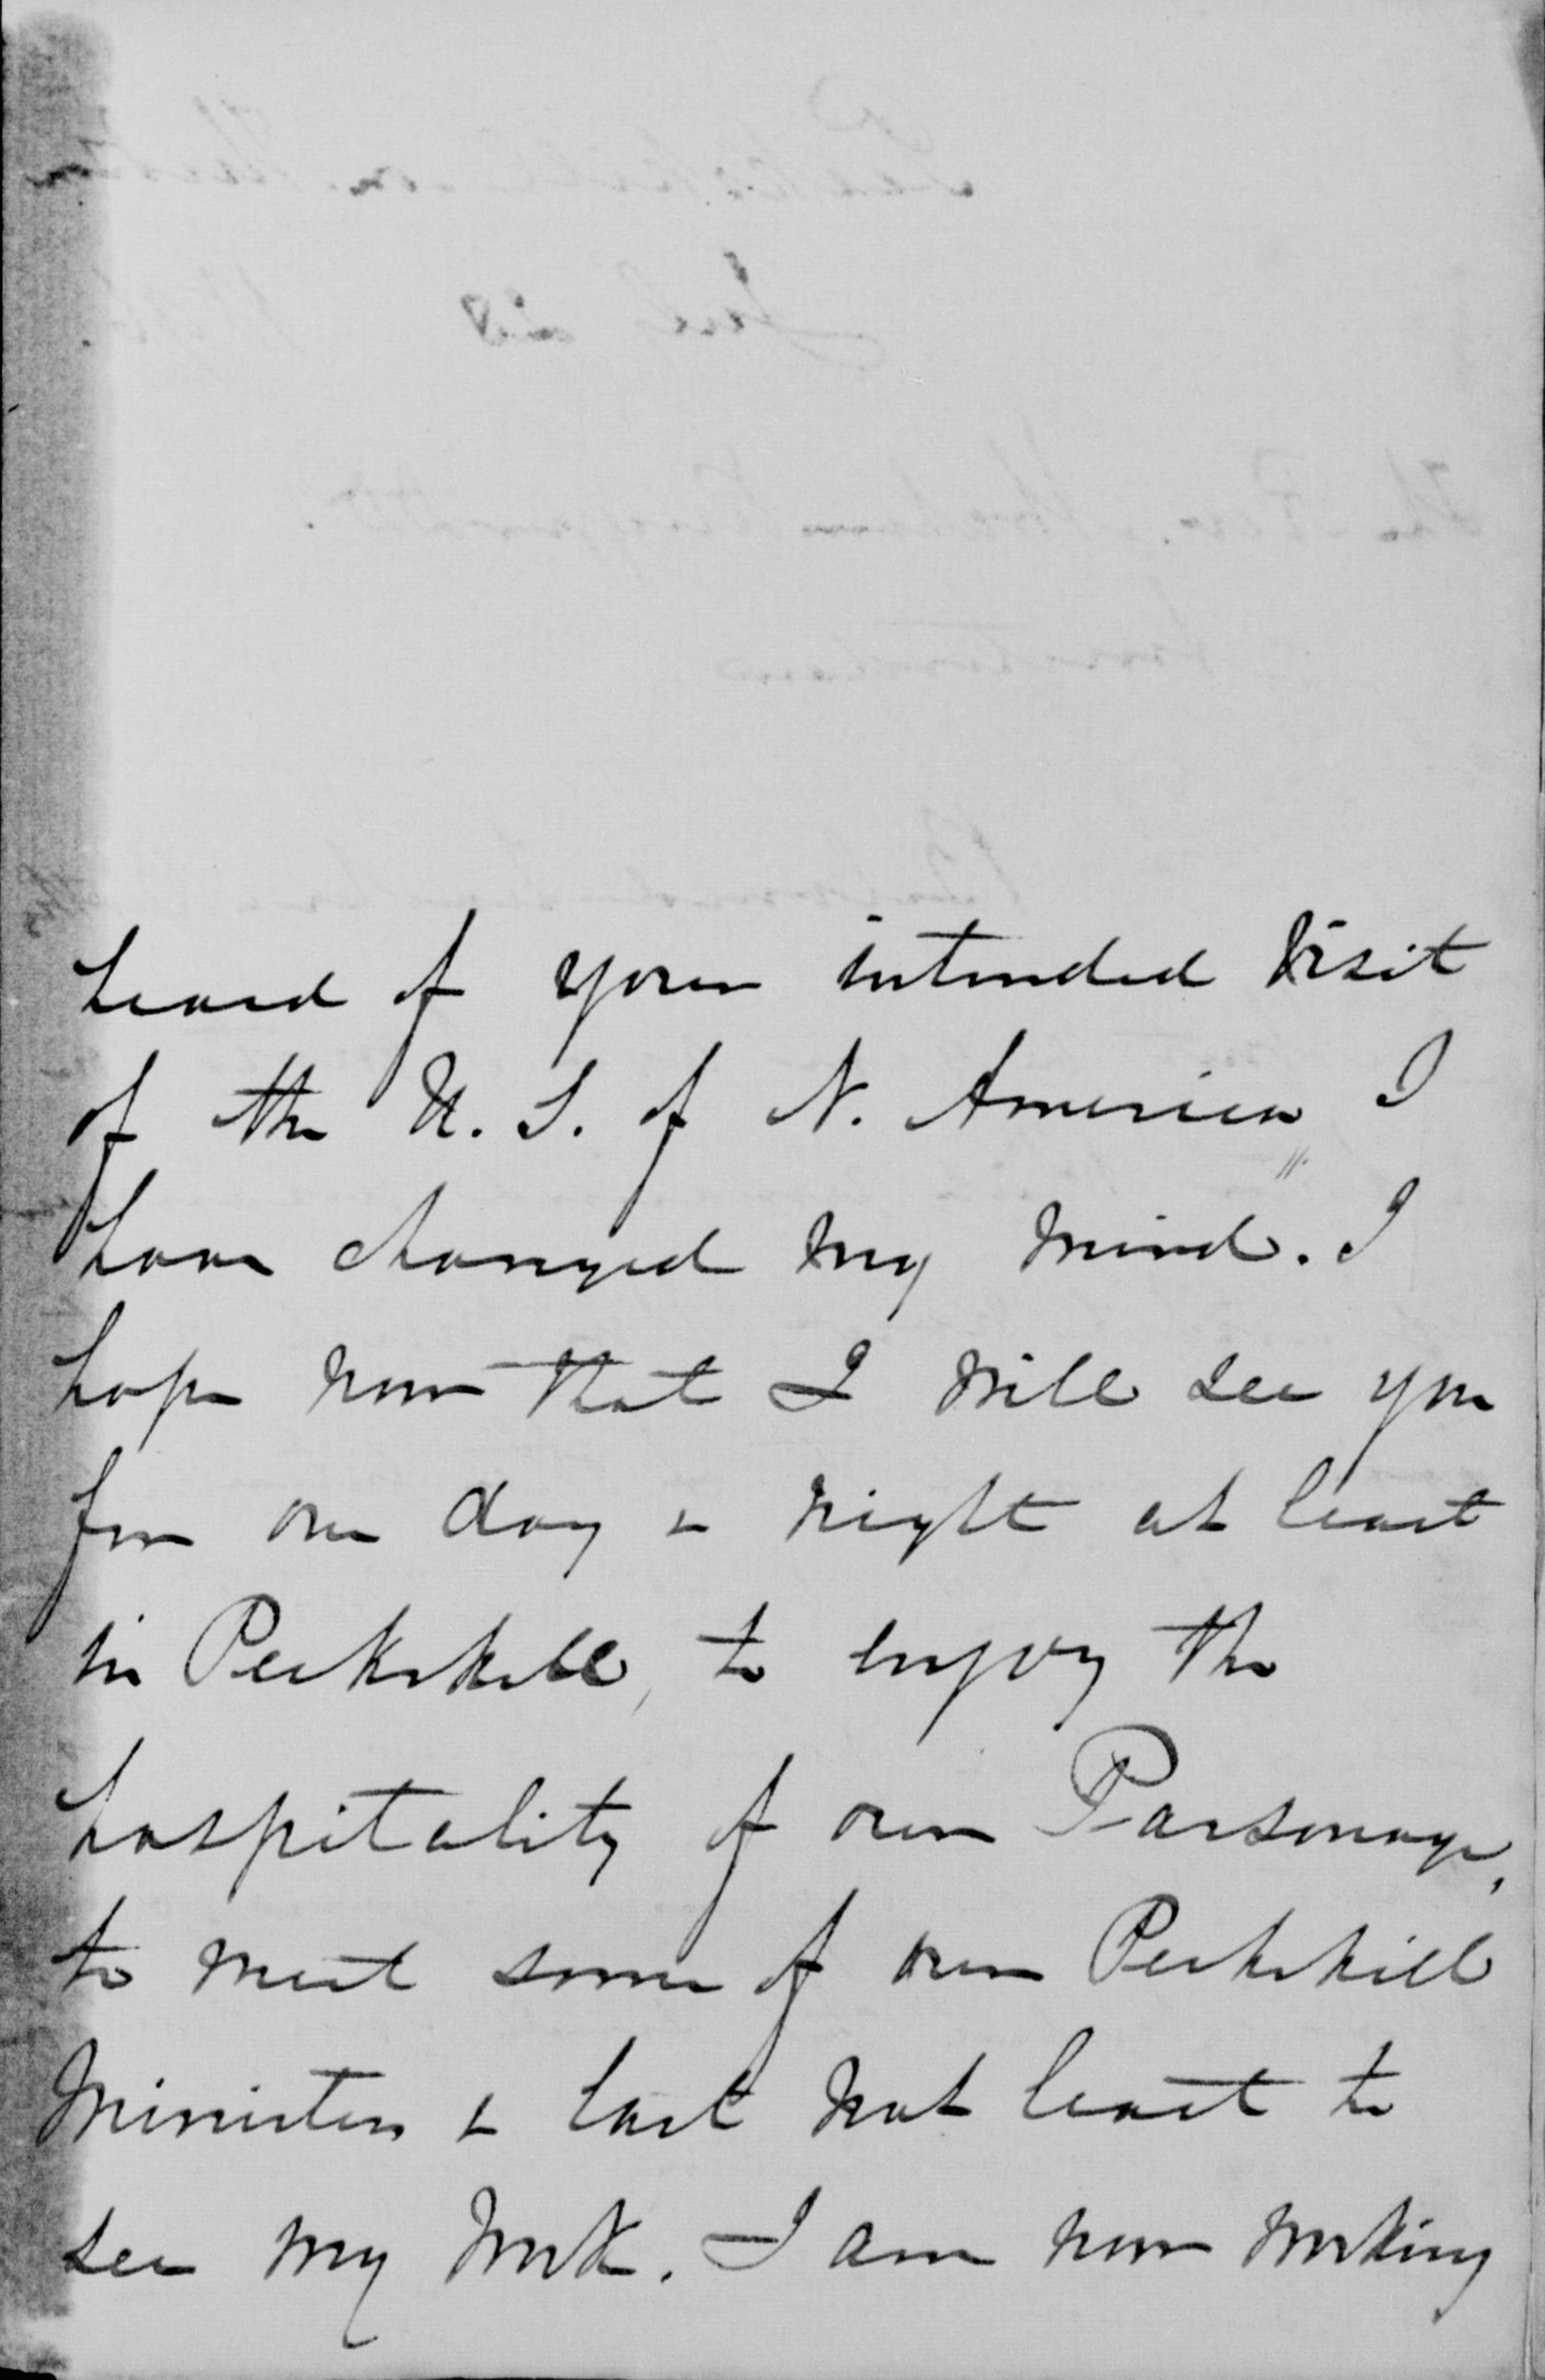 heard of your intended visit
of the U. S. of N. America, I
have changed my mind. I
hope now that I will see you
for one day & night at least
in Peekskill, to enjoy the
hospitality of our Parsonage,
to meet some of our Peekskill
Ministers & last not least to
see my work. I am now working